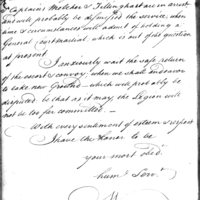 Captains Melcher & Tillinghast are in arrest
and will probably be dismissed the service, when
time & circumstances will admit of holding a
General Court martial, which is out of the question
at present
I anxiously wait the safe return
of the escort & convoy, when we shall endeavor
to take new Ground — which will probably be
disputed be that as it may, the Legion will
not be too far committed. —
With every sentiment of esteem & respect
I have the Honor to be
your most obed.t
hum.e Serv.t